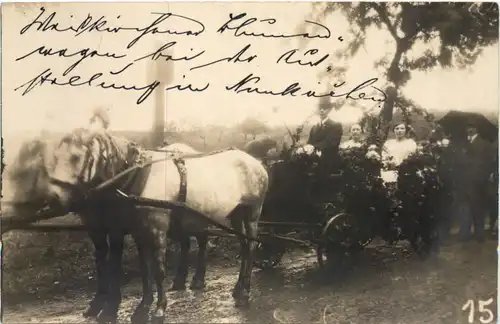 Weißkirchner Blumen"
wagen bei der Aus"
stellung in Neunkirchen
15